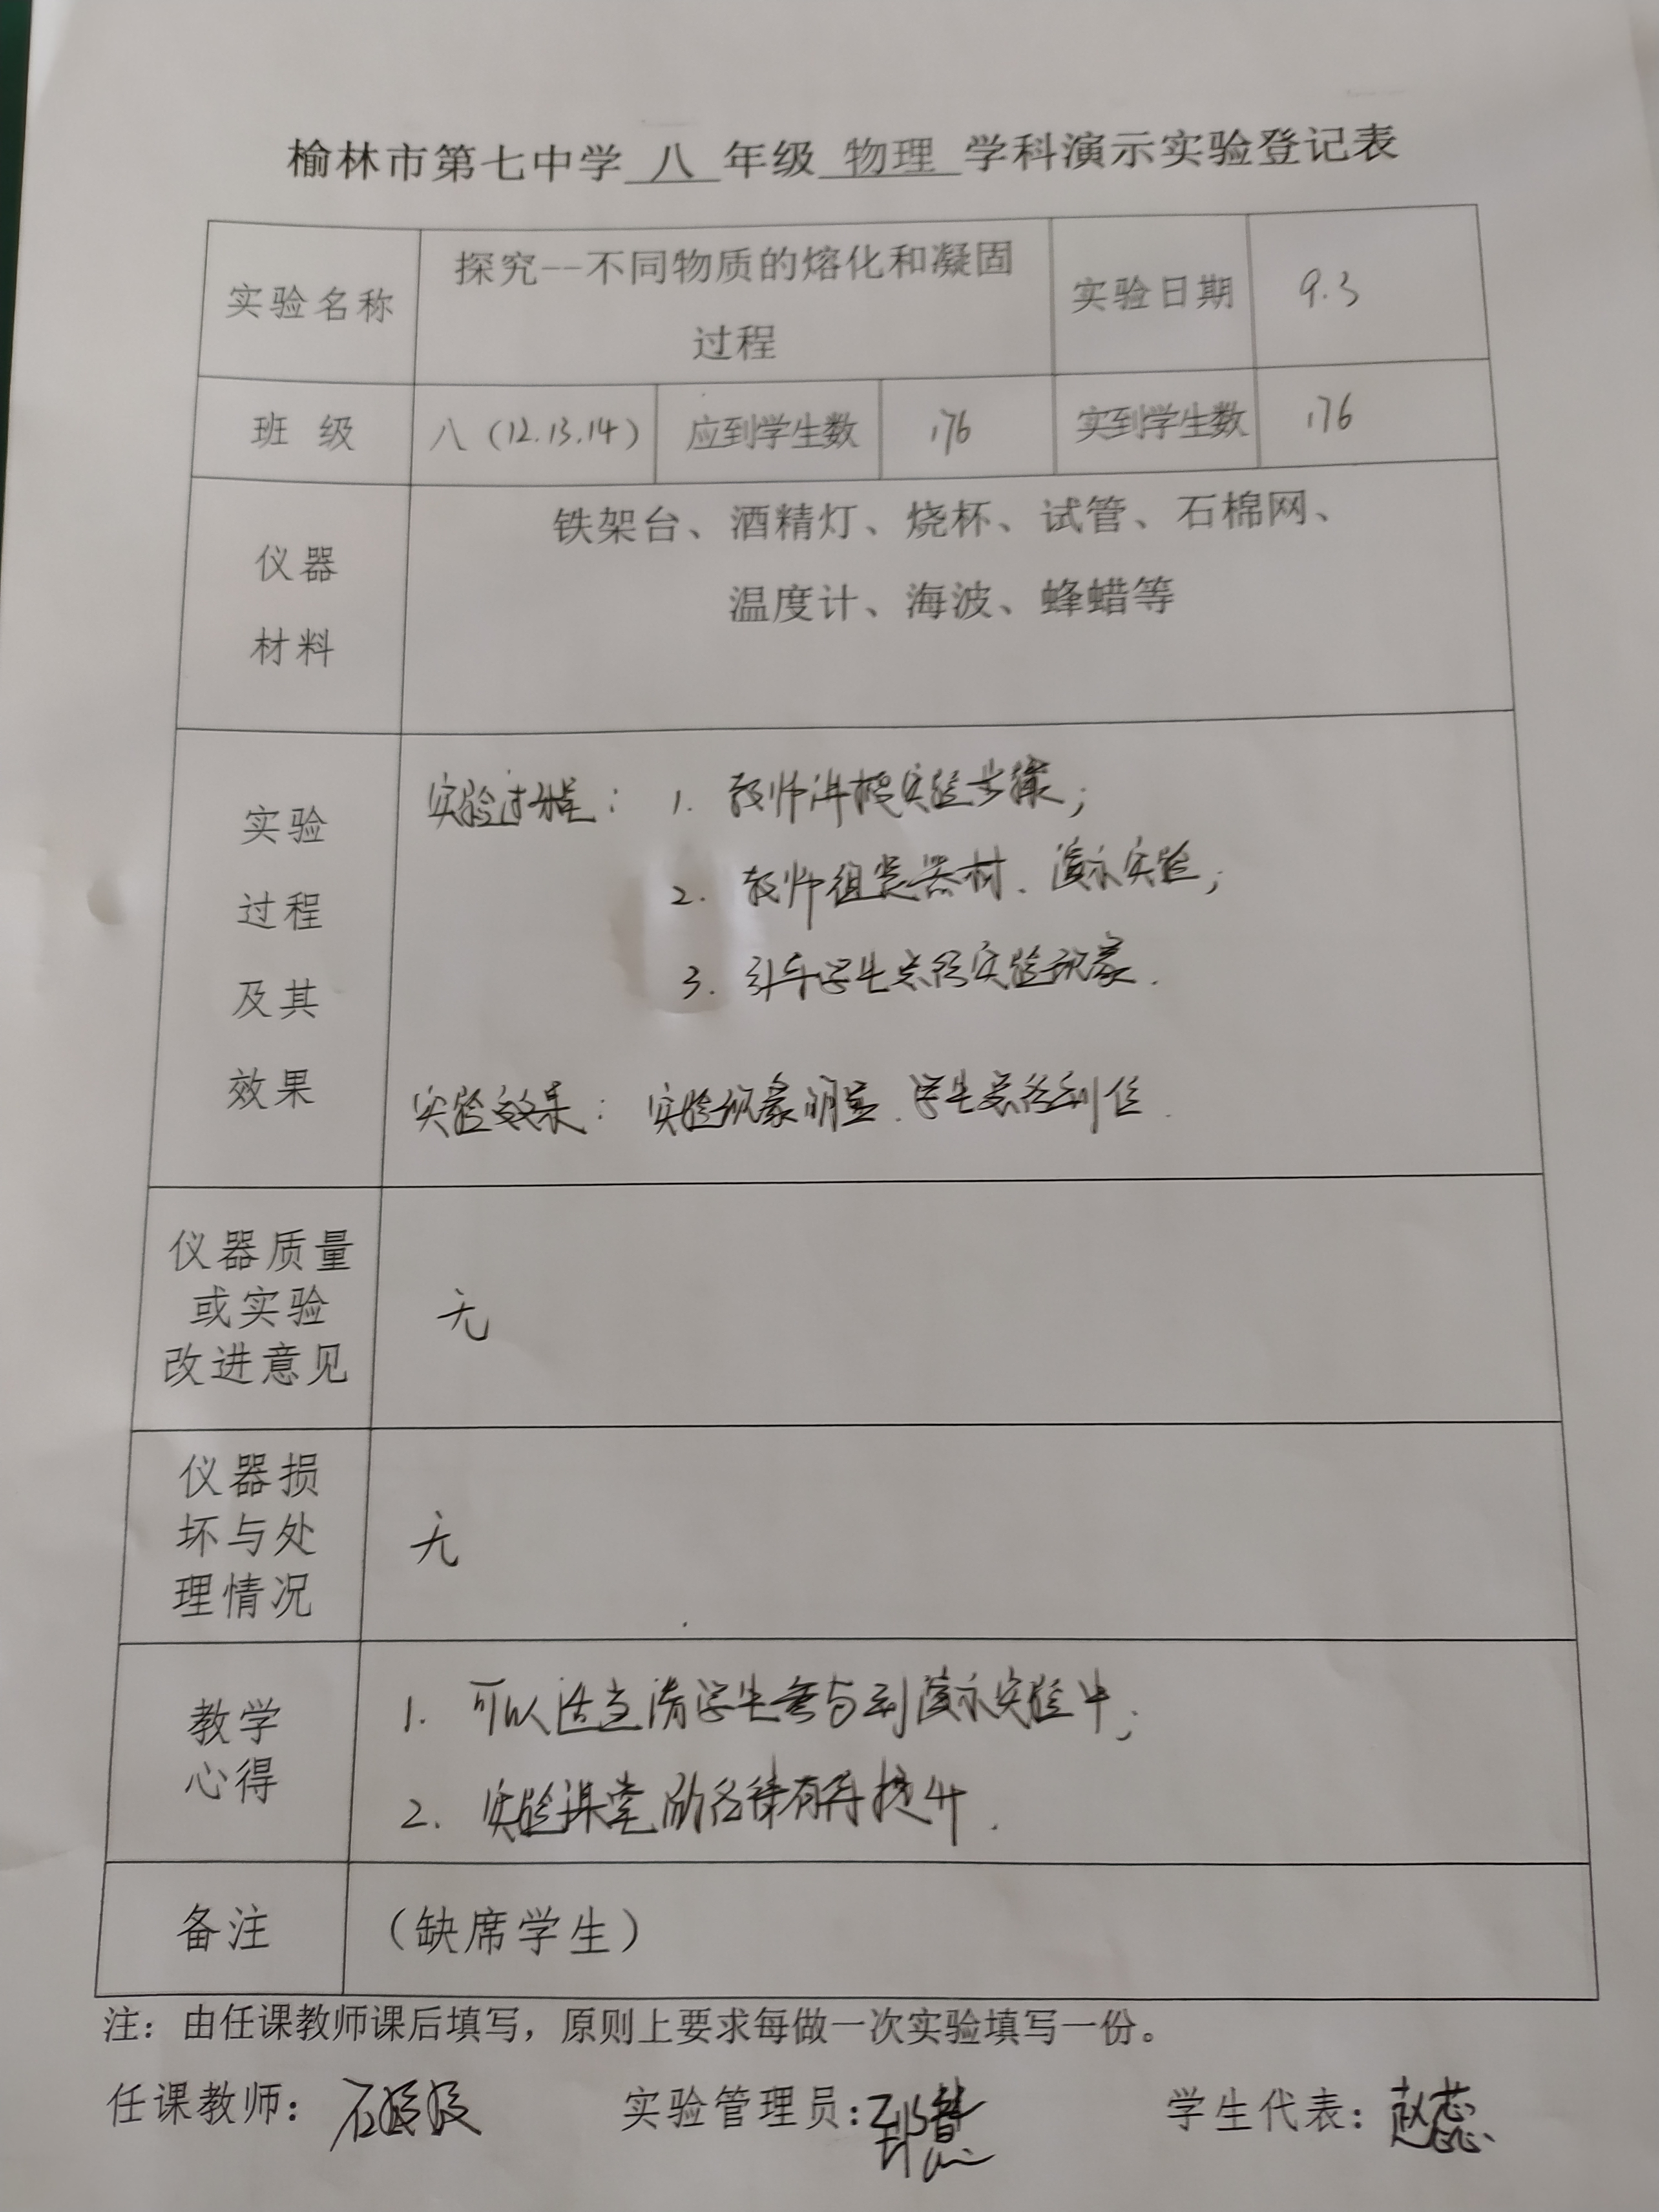 榆林市第七中学 八 年级 物理 学科演示实验登记表
实验名称 探究--不同物质的熔化和凝固 实验日期 9.3
过程
班 级 八（12.13.14） 应到学生数 176 实到学生数 176
仪器 铁架台、酒精灯、烧杯、试管、石棉网、
材料 温度计、海波、蜂蜡等
实验
过程
及其
效果
实验过程： 1. 教师讲授实验步骤；
2. 教师组装器材、演示实验；
3. 引导学生总结实验现象.
实验效果： 实验现象明显、学生总结到位.
仪器质量
或实验
改进意见
无
仪器损
坏与处
理情况
无
教学
心得
1. 可以适当请学生参与到演示实验中；
2. 实验课堂 有再提升.
备注 （缺席学生）
注：由任课教师课后填写，原则上要求每做一次实验填写一份。
任课教师： 实验管理员： 学生代表：赵蕊